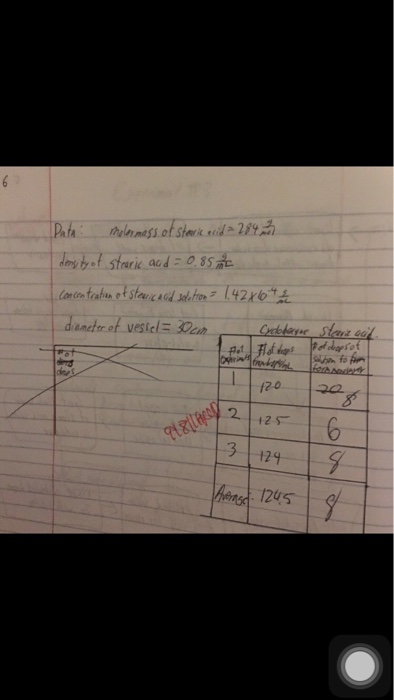 6
Data: molarmass of stearic acid = 284 g/mol
density of stearic acid = 0.85 g/mL
concentration of stearic acid solution = 1.42x10^-4 g/mL
diameter of vessel = 30cm
# of
drops
Cyclohexane Stearic acid
# of # of drops # of drops of
solution to form
1 120 20 8
2 125 6
3 124 8
Average 124.5 8